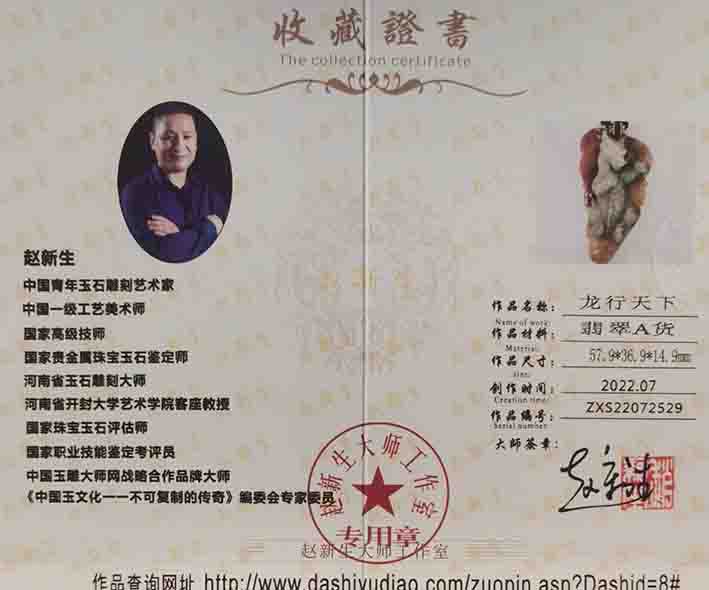 收藏證書
The collection certificate
赵新生
中国青年玉石雕刻艺术家
中国一级工艺美术师
国家高级技师
国家贵金属珠宝玉石鉴定师
河南省玉石雕刻大师
河南省开封大学艺术学院客座教授
国家珠宝玉石评估师
国家职业技能鉴定考评员
中国玉雕大师网战略合作品牌大师
《中国玉文化一一不可复制的传奇》编委会专家委员
赵新生
作品名称: 龙行天下
Name of work:
作品材料: 翡翠A货
Material:
作品尺寸: 57.9*36.9*14.9mm
size:
创作时间: 2022.07
Creation time:
作品编号: ZXS22072529
Serial number:
大师签章: 赵新生
赵新生大师工作室
专用章
赵新生大师工作室
作品查询网址 http://www.dashiyudiao.com/zuopin.asp?Dashid=8#